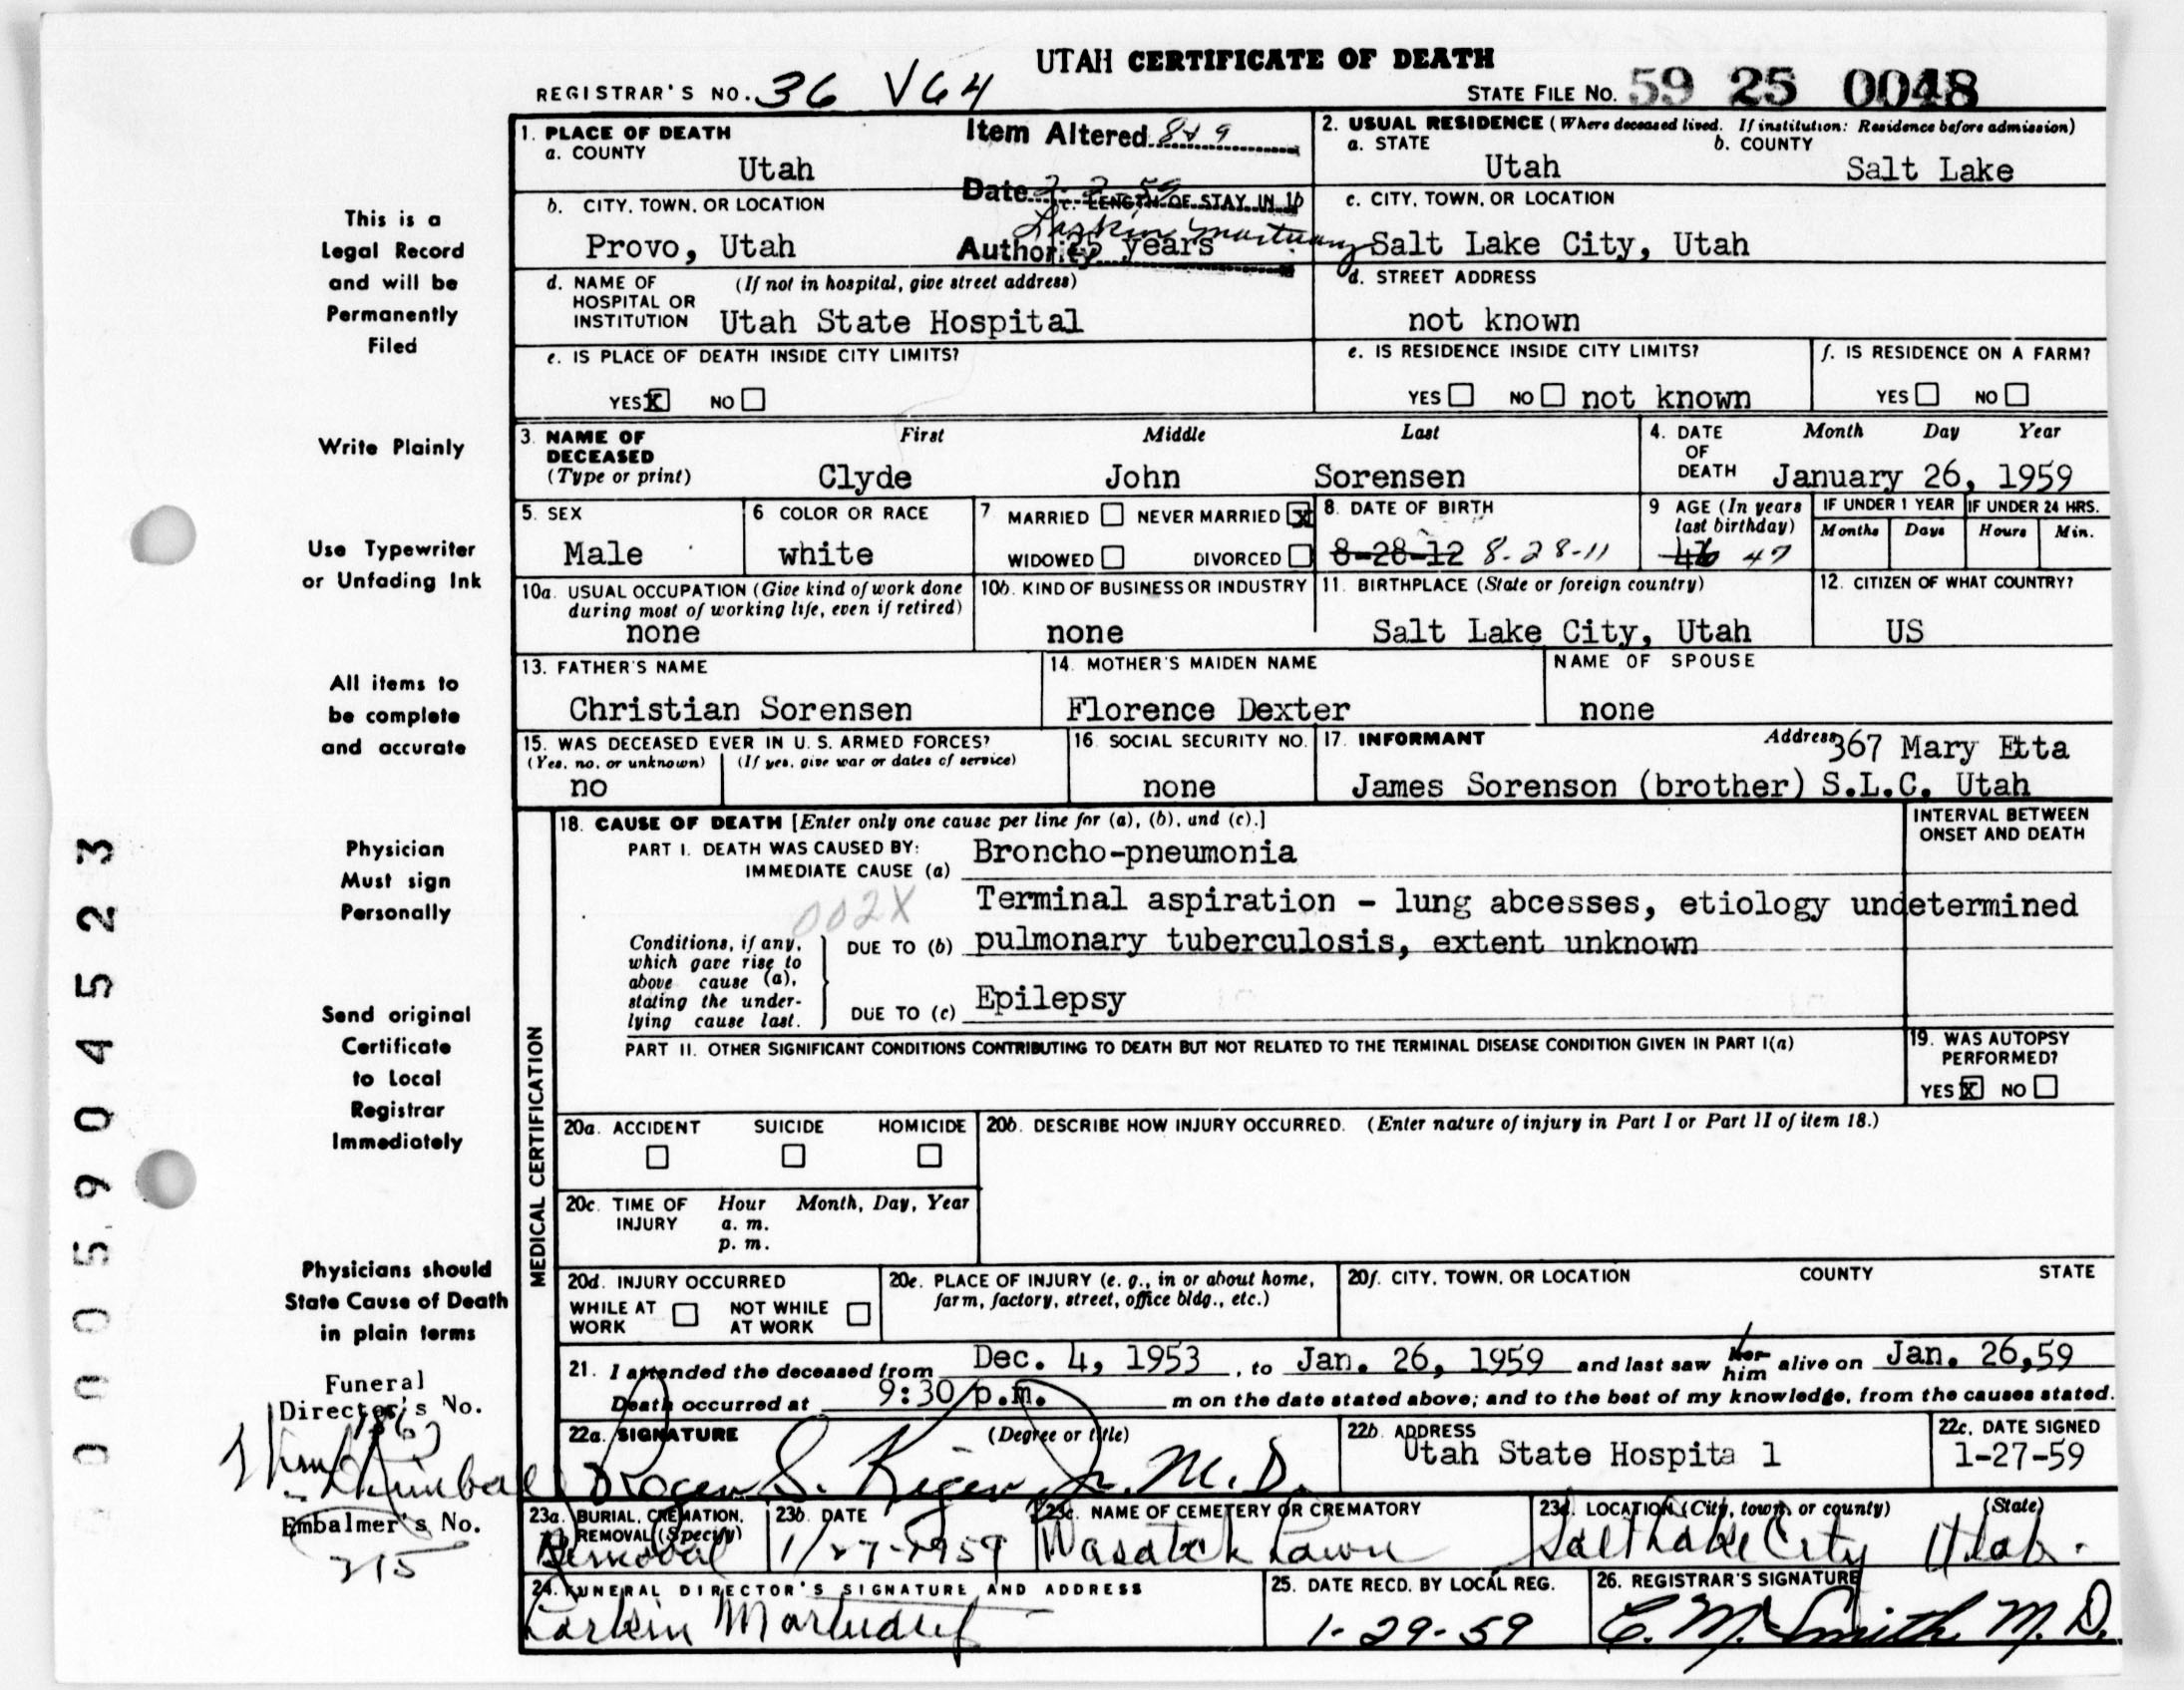 UTAH CERTIFICATE OF DEATH
REGISTRAR'S NO. 36 V64
STATE FILE NO. 59 25 0048
1. PLACE OF DEATH
a. COUNTY
Utah
Item Altered 8 & 9
Date 2-2-59
Authority Larkin Mortuary
2. USUAL RESIDENCE (Where deceased lived. If institution: Residence before admission)
a. STATE
Utah
b. COUNTY
Salt Lake
b. CITY, TOWN, OR LOCATION
Provo, Utah
c. LENGTH OF STAY IN 1b
years
c. CITY, TOWN, OR LOCATION
Salt Lake City, Utah
d. NAME OF HOSPITAL OR INSTITUTION
(If not in hospital, give street address)
Utah State Hospital
d. STREET ADDRESS
not known
e. IS PLACE OF DEATH INSIDE CITY LIMITS?
YES X NO
e. IS RESIDENCE INSIDE CITY LIMITS?
YES NO not known
f. IS RESIDENCE ON A FARM?
YES NO
3. NAME OF DECEASED
(Type or print)
First Middle Last
Clyde John Sorensen
4. DATE OF DEATH
Month Day Year
January 26, 1959
5. SEX
Male
6 COLOR OR RACE
white
7 MARRIED NEVER MARRIED X
WIDOWED DIVORCED
8. DATE OF BIRTH
8-28-12 8-28-11
9 AGE (In years last birthday)
46 47
IF UNDER 1 YEAR
Months Days
IF UNDER 24 HRS.
Hours Min.
10a. USUAL OCCUPATION (Give kind of work done during most of working life, even if retired)
none
10b. KIND OF BUSINESS OR INDUSTRY
none
11. BIRTHPLACE (State or foreign country)
Salt Lake City, Utah
12. CITIZEN OF WHAT COUNTRY?
US
13. FATHER'S NAME
Christian Sorensen
14. MOTHER'S MAIDEN NAME
Florence Dexter
NAME OF SPOUSE
none
15. WAS DECEASED EVER IN U. S. ARMED FORCES?
(Yes, no, or unknown) (If yes, give war or dates of service)
no
16. SOCIAL SECURITY NO.
none
17. INFORMANT
Address 367 Mary Etta
James Sorenson (brother) S.L.C. Utah
MEDICAL CERTIFICATION
18. CAUSE OF DEATH [Enter only one cause per line for (a), (b), and (c).]
INTERVAL BETWEEN ONSET AND DEATH
PART I. DEATH WAS CAUSED BY:
IMMEDIATE CAUSE (a) Broncho-pneumonia
002X
Terminal aspiration - lung abcesses, etiology undetermined
Conditions, if any, which gave rise to above cause (a), stating the underlying cause last.
DUE TO (b) pulmonary tuberculosis, extent unknown
DUE TO (c) Epilepsy
PART II. OTHER SIGNIFICANT CONDITIONS CONTRIBUTING TO DEATH BUT NOT RELATED TO THE TERMINAL DISEASE CONDITION GIVEN IN PART I(a)
19. WAS AUTOPSY PERFORMED?
YES X NO
20a. ACCIDENT SUICIDE HOMICIDE
20b. DESCRIBE HOW INJURY OCCURRED. (Enter nature of injury in Part I or Part II of item 18.)
20c. TIME OF INJURY
Hour Month, Day, Year
a. m.
p. m.
20d. INJURY OCCURRED
WHILE AT WORK
NOT WHILE AT WORK
20e. PLACE OF INJURY (e. g., in or about home, farm, factory, street, office bldg., etc.)
20f. CITY, TOWN, OR LOCATION COUNTY STATE
21. I attended the deceased from Dec. 4, 1953, to Jan. 26, 1959 and last saw her him alive on Jan. 26,59
Death occurred at 9:30 p.m. m on the date stated above; and to the best of my knowledge, from the causes stated.
22a. SIGNATURE (Degree or title)
Roger S. Kiger Jr. M.D.
22b. ADDRESS
Utah State Hospita l
22c. DATE SIGNED
1-27-59
23a. BURIAL, CREMATION, REMOVAL (Specify)
Removal
23b. DATE
1/27-1959
23c. NAME OF CEMETERY OR CREMATORY
Wasatch Lawn
23d. LOCATION (City, town, or county) (State)
Salt Lake City Utah.
24. FUNERAL DIRECTOR'S SIGNATURE AND ADDRESS
Larkin Mortuary
25. DATE RECD. BY LOCAL REG.
1-29-59
26. REGISTRAR'S SIGNATURE
C. M. Smith M. D.
This is a
Legal Record
and will be
Permanently
Filed
Write Plainly
Use Typewriter
or Unfading Ink
All items to
be complete
and accurate
Physician
Must sign
Personally
Send original
Certificate
to Local
Registrar
Immediately
Physicians should
State Cause of Death
in plain terms
Funeral
Director's No.
Embalmer's No.
315
0005904523